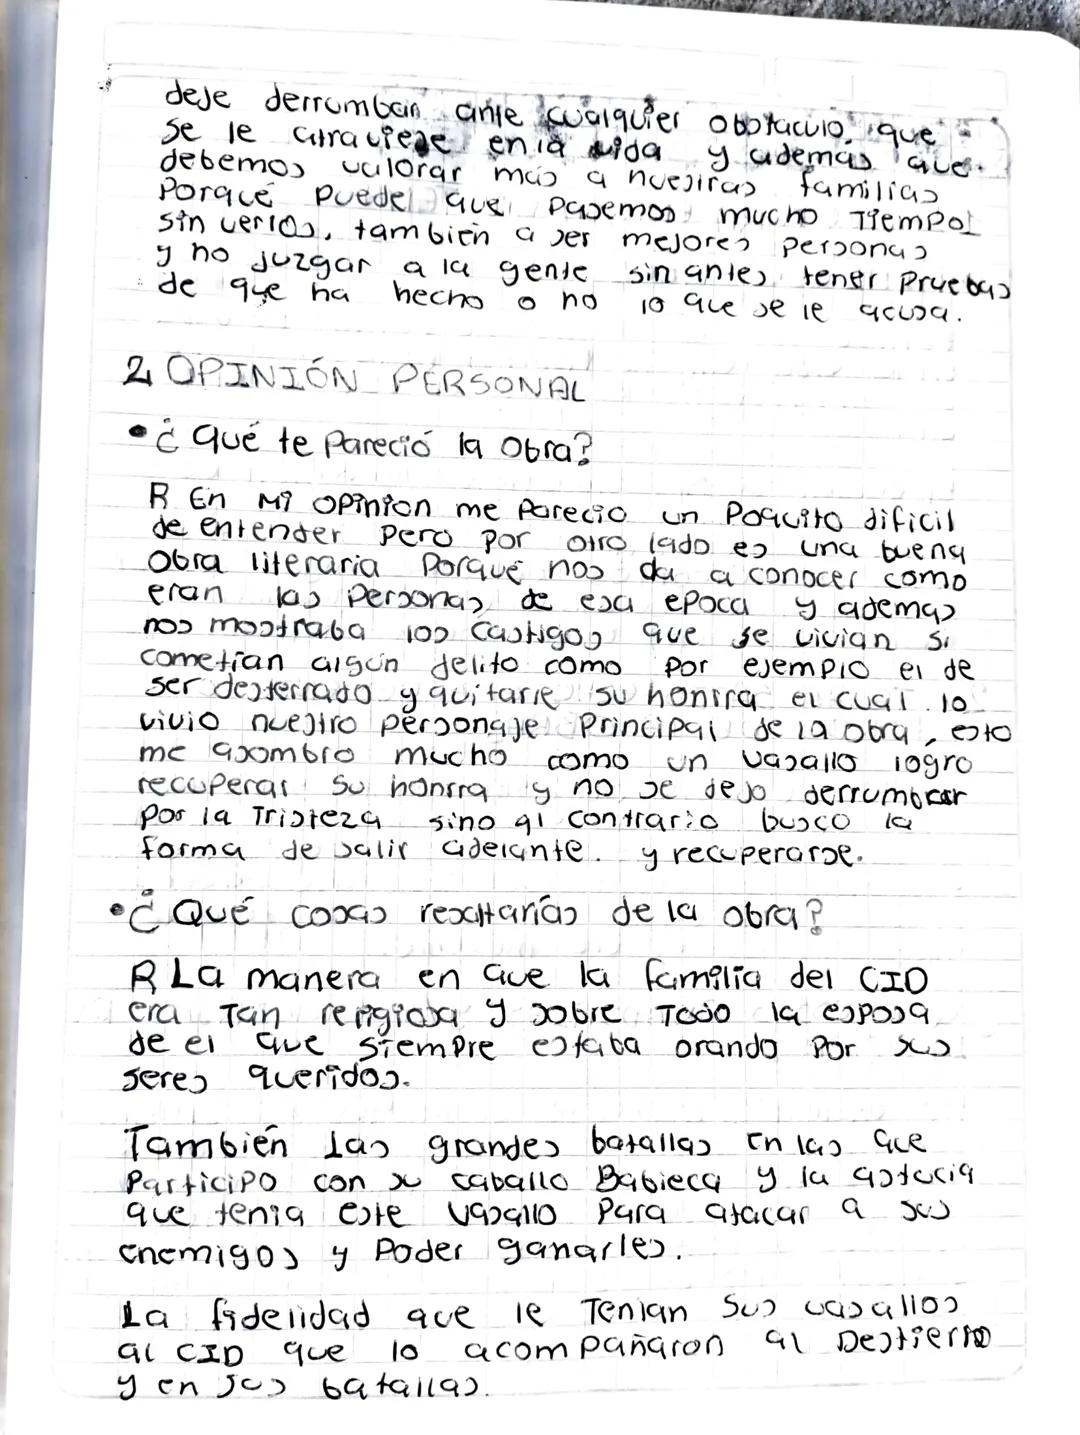 deje derrumban ante cualquier obstaculo que
se le atraviese en la vida y además que
debemos valorar más a nuestras familias
Porque puede que pasemos mucho Tiempo
sin verlos, también a ser mejores personas
y no juzgar a la gente sin antes tener Pruebas
de que ha hecho o no lo que se le acusa.
2 OPINIÓN PERSONAL
• ¿Qué te Pareció la Obra?
R En Mi OPinion me Parecio un Poquito dificil
de entender Pero por otro lado es una buena
Obra literaria Porque nos da a conocer como
eran las Personas de esa epoca y ademas
nos mostraba los castigos que se vivian si
cometían algún delito como por ejemplo el de
ser desterrado y quitarle su honrra el cual lo
vivio nuestro personaje Principal de la obra, esto
me asombro mucho como un vasallo logro
recuperar su honrra y no se dejo derrumbar
Por la Tristeza sino al contrario busco la
forma de salir adelante. y recuperarse.
• ¿Qué cosas resaltarías de la obra?
R La manera en que la familia del CID
era Tan religiosa y sobre Todo la esposa
de el que siempre estaba orando Por sus
seres queridos.
También las grandes batallas En las que
Participo con su caballo Babieca y la astucia
que tenia este vasallo Para atacar a sus
enemigos y Poder ganarles.
La fidelidad que le Tenian sus vasallos
al CID que lo acompañaron al Destierro
y en sus batallas.